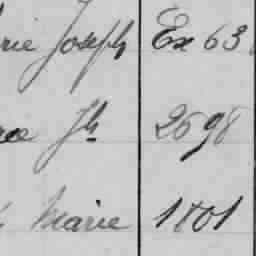 rie Joseph Ex 63
Jh 2698
Marie 1801